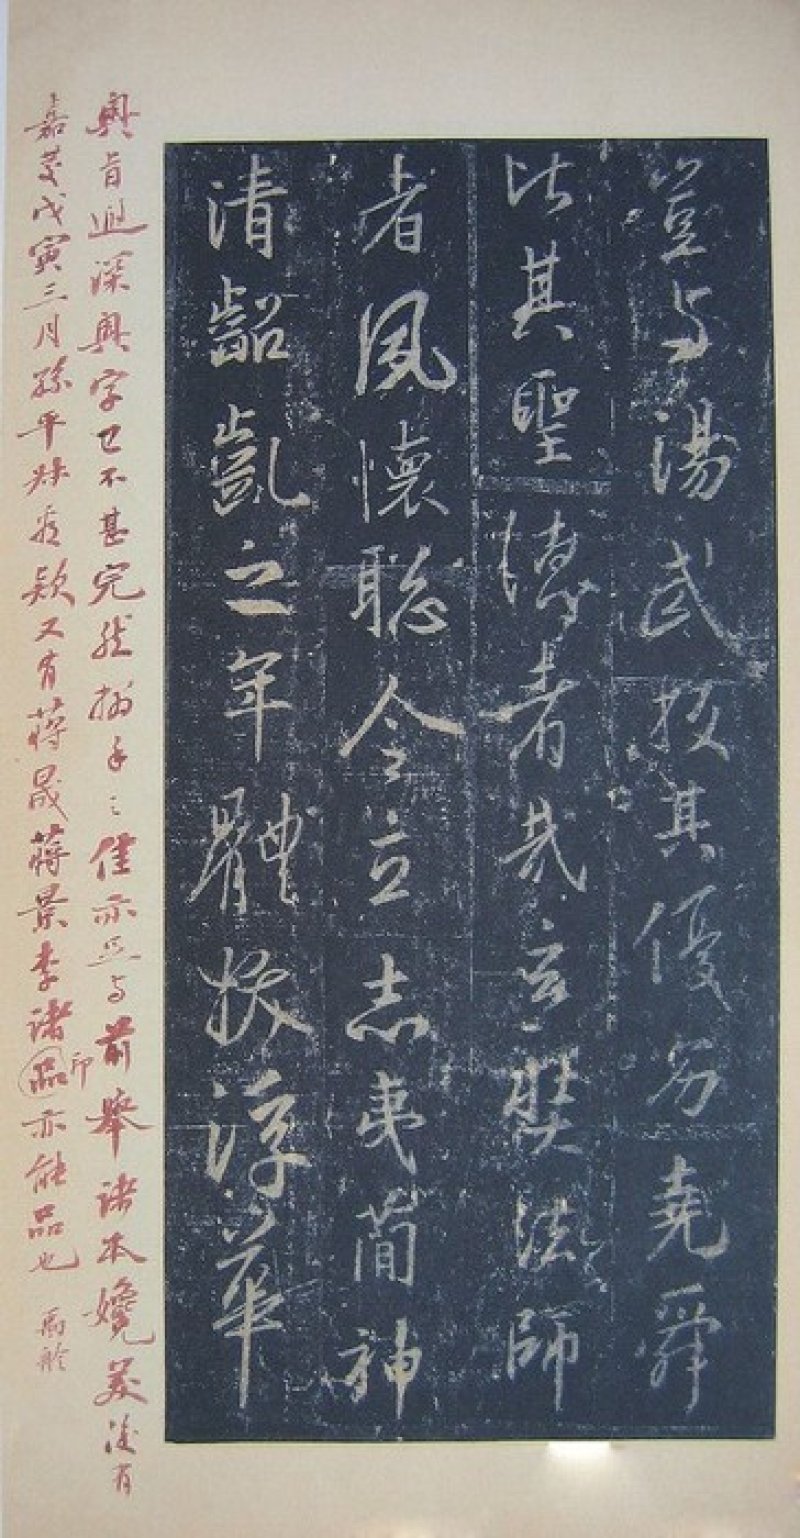 豈与湯武挍其優劣堯舜
比其聖德者哉玄奘法師
者夙懷聡令立志夷簡神
清齠齓之年體拔浮華
奧旨遐深奧字已不甚完然搨手之佳亦足与前舉諸本媲美後有
嘉慶戊寅三月孫平叔看款又有蔣晟蔣景李諸印亦能品也